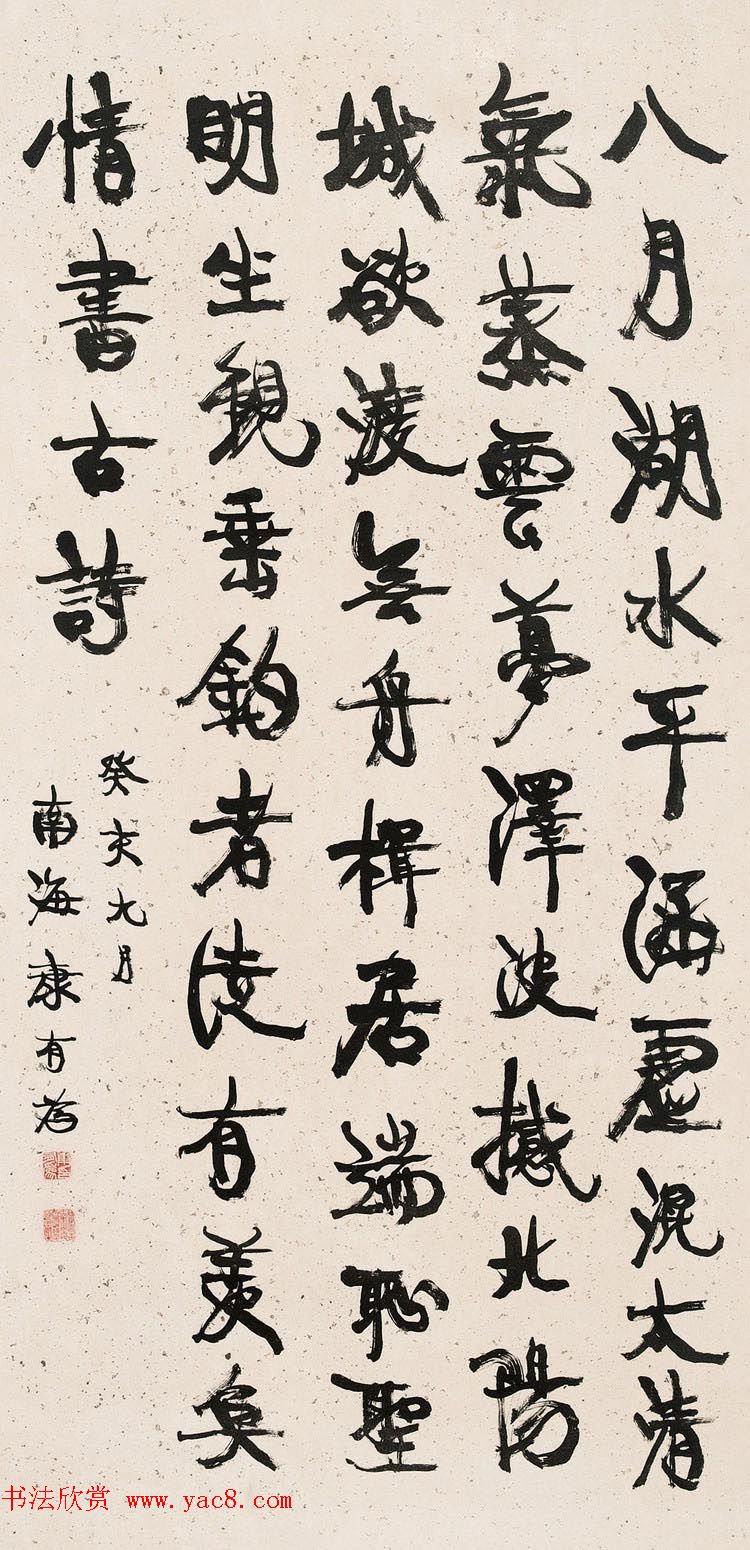 八月湖水平涵虛混太清
氣蒸雲夢澤波撼北陽
城欲渡無舟楫居端恥聖
明坐觀垂釣者徒有羨魚
情書古詩
癸亥九月
南海康有為
书法欣赏 www.yac8.com